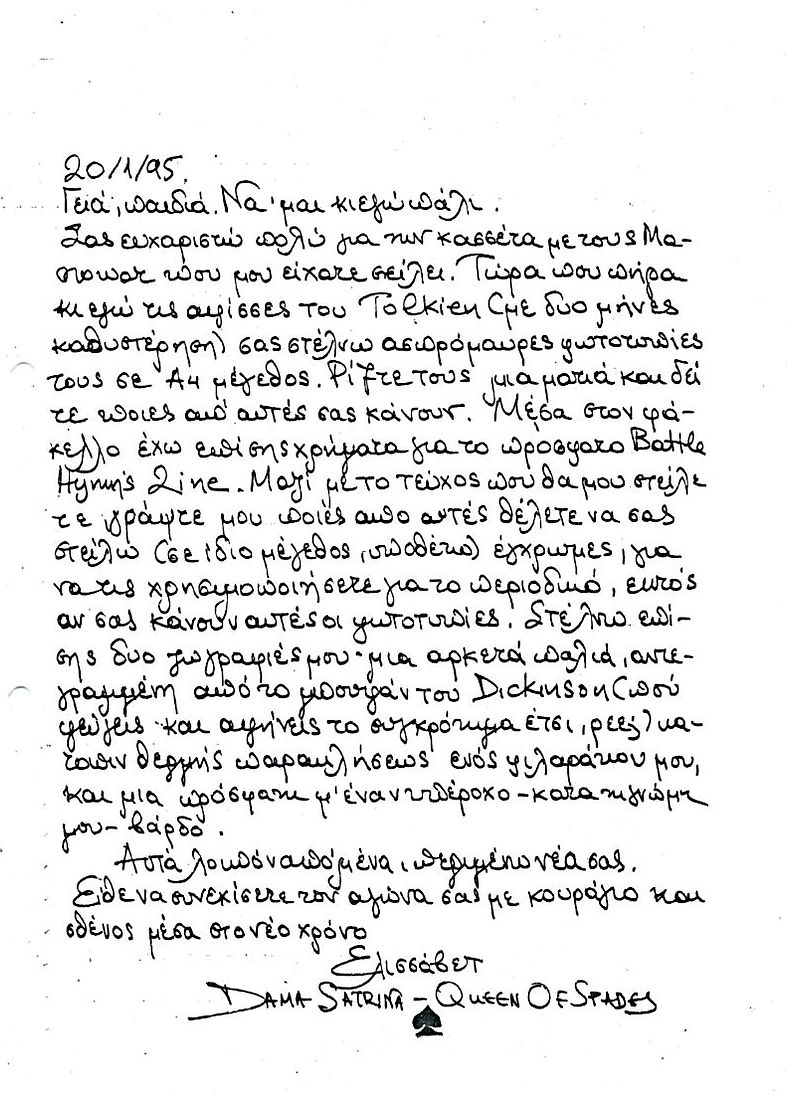 20/1/95.
Γειά, παιδιά. Να 'μαι κι εγώ πάλι.
Σας ευχαριστώ πολύ για την κασσέτα με τους Μα-
νοwαr που μου είχατε στείλει. Τώρα που πήρα
κι εγώ τις αφίσσες του Tolkien (με δυο μήνες
καθυστέρηση) σας στέλνω ασπρόμαυρες φωτοτυπίες
τους σε A4 μέγεθος. Ρίξτε τους μια ματιά και δεί
τε ποιες από αυτές σας κάνουν. Μέσα στον φά-
κελλο έχω επίσης χρήματα για το πρόσφατο Battle
Hymns Zine. Μαζί με το τεύχος που θα μου στείλε
τε γράψτε μου ποιές απο αυτές θέλετε να σας
στείλω (σε ίδιο μέγεθος, υποθέτω) έγχρωμες, για
να τις χρησιμοποιήσετε για το περιοδικό, εκτός
αν σας κάνουν αυτές οι φωτοτυπίες. Στέλνω επί-
σης δυο ζωγραφιές μου· μια αρκετά παλιά, αντε-
γραμμένη από το μπουφάν του Dickinson (πού
φεύγεις και αφήνεις το συγκρότημα έτσι, ρεεε;) κα-
τοπιν θερμής παρακλήσεως ενός φιλαράκου μου,
και μια πρόσφατη μ' έναν υπέροχο - κατα τη γνώμη
μου - βάρδο.
Αυτά λοιπόν από μένα, περιμένω νέα σας.
Είθε να συνεχίσετε τον αγώνα σας με κουράγιο και
σθένος μέσα στο νέο χρόνο
Ελισσάβετ
DAMA SATRINA - QUEEN OF SPADES